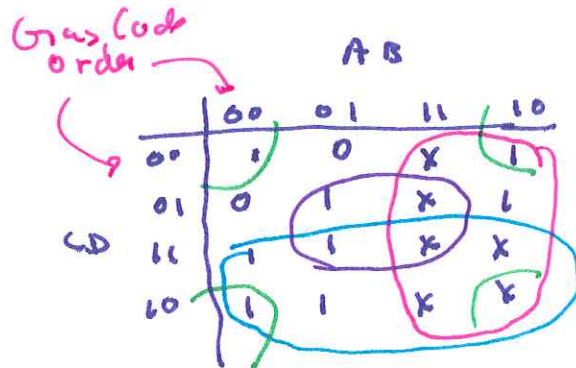 Gray Code
order
AB
00 01 11 10
00 1 0 x 1
01 0 1 x 1
CD
11 1 1 x x
10 1 1 x x